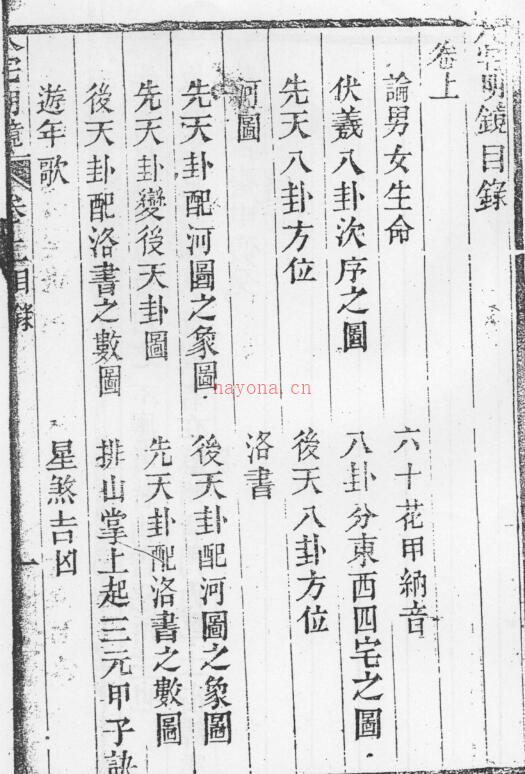 八宅明鏡目錄
卷上
論男女生命
六十花甲納音
伏羲八卦次序之圖
八卦分東西四宅之圖
先天八卦方位
後天八卦方位
河圖
洛書
先天卦配河圖之象圖
後天卦配河圖之象圖
先天卦變後天卦圖
先天卦配洛書之數圖
後天卦配洛書之數圖
排山掌上起三元甲子訣
遊年歌
星煞吉凶
宅明鏡 卷上目錄 一
nayona.cn